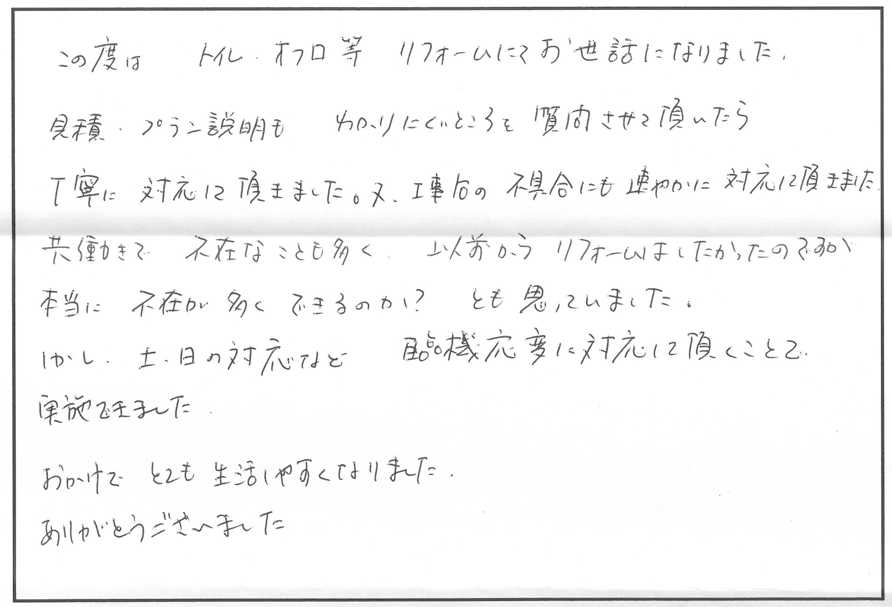 この度は トイレ・オフロ等 リフォームにてお世話になりました。
見積・プラン説明も わかりにくいところを 質問させて頂いたら
丁寧に 対応して頂きました。又、工事后の 不具合にも 速やかに 対応して頂きました。
共働きで 不在なことも多く、以前から リフォームはしたかったのですが
本当に 不在が 多く できるのか? とも 思っていました。
しかし、土・日の対応など 臨機応変に対応して頂くことで
実施できました。
おかげで とても 生活しやすくなりました。
ありがとうございました